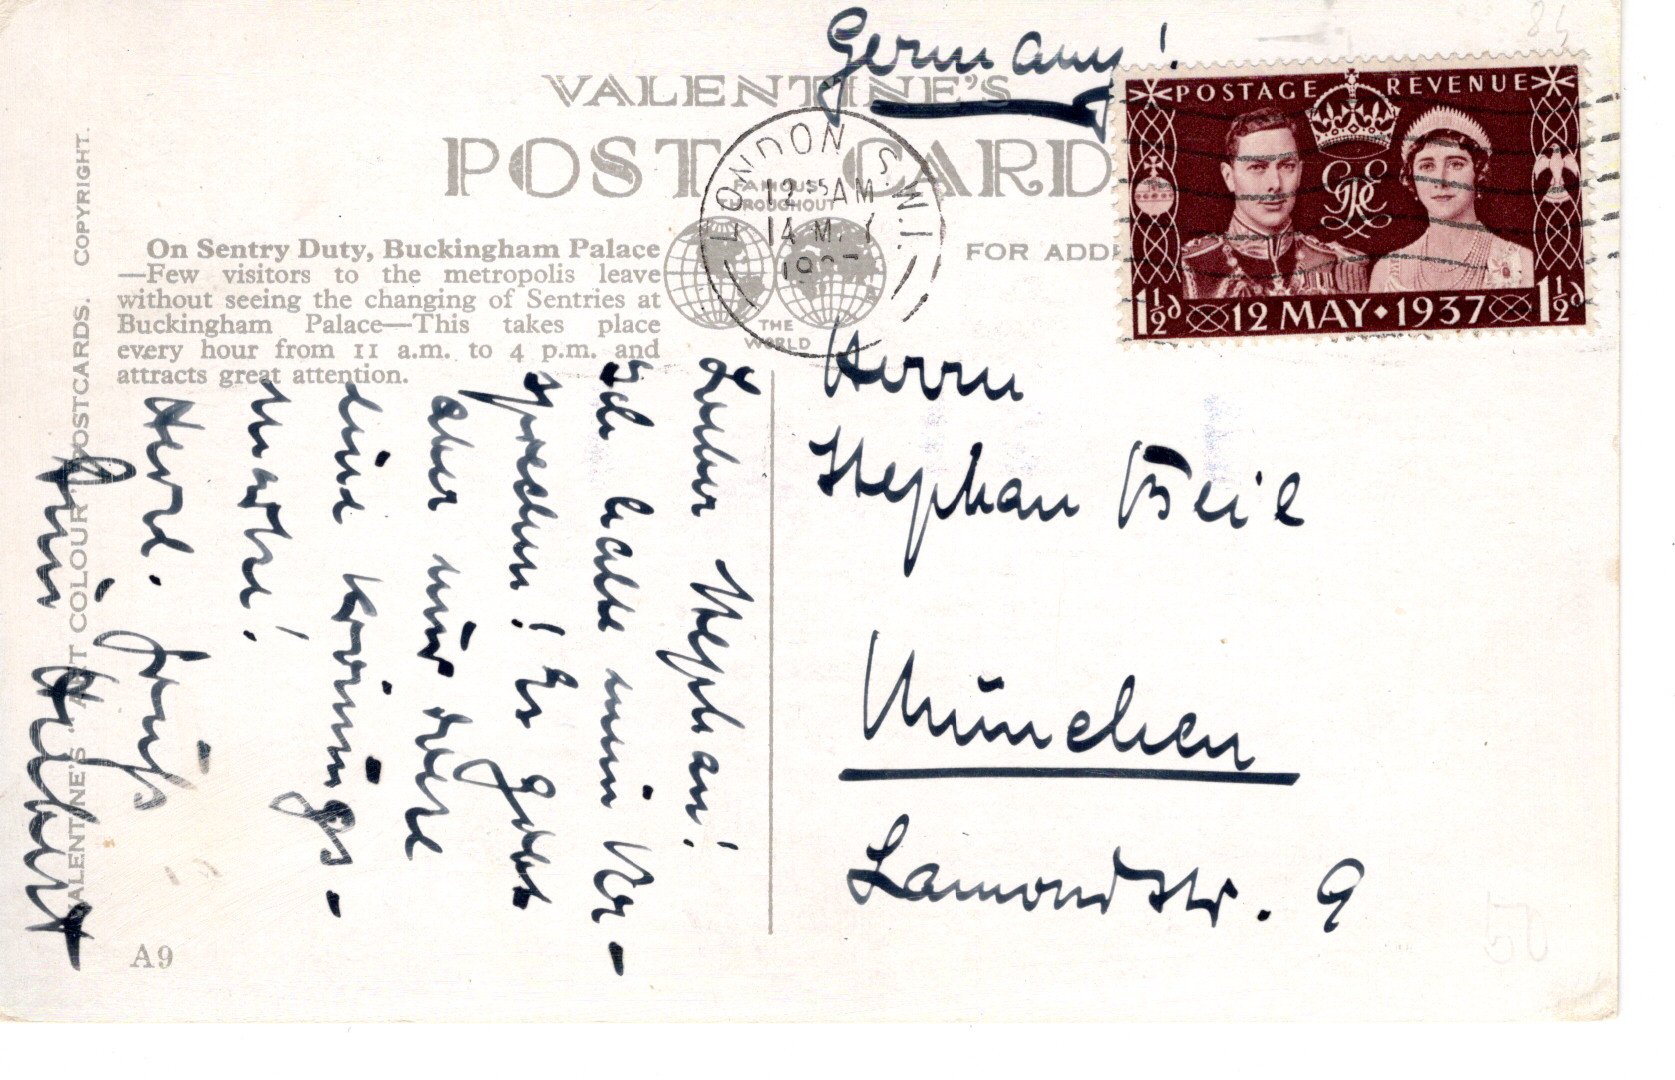 Germany!
VALENTINE'S
POST CARD
FAMOUS THROUGHOUT
THE WORLD
LONDON S.W.1.
12 15 AM
14 MY
1937
FOR ADD
POSTAGE REVENUE
GRE
1½d 12 MAY · 1937 1½d
On Sentry Duty, Buckingham Palace
—Few visitors to the metropolis leave
without seeing the changing of Sentries at
Buckingham Palace—This takes place
every hour from 11 a.m. to 4 p.m. and
attracts great attention.
VALENTINE'S "ART COLOUR" POSTCARDS. COPYRIGHT.
Lieber Stephan!
Ich halte mein Ver-
sprechen! Es gibt
aber nur diese
eine Krönungs-
marke!
Herzl. Gruß
Dein Herbert
A9
Herrn
Stephan Beil
München
Lamondstr. 9